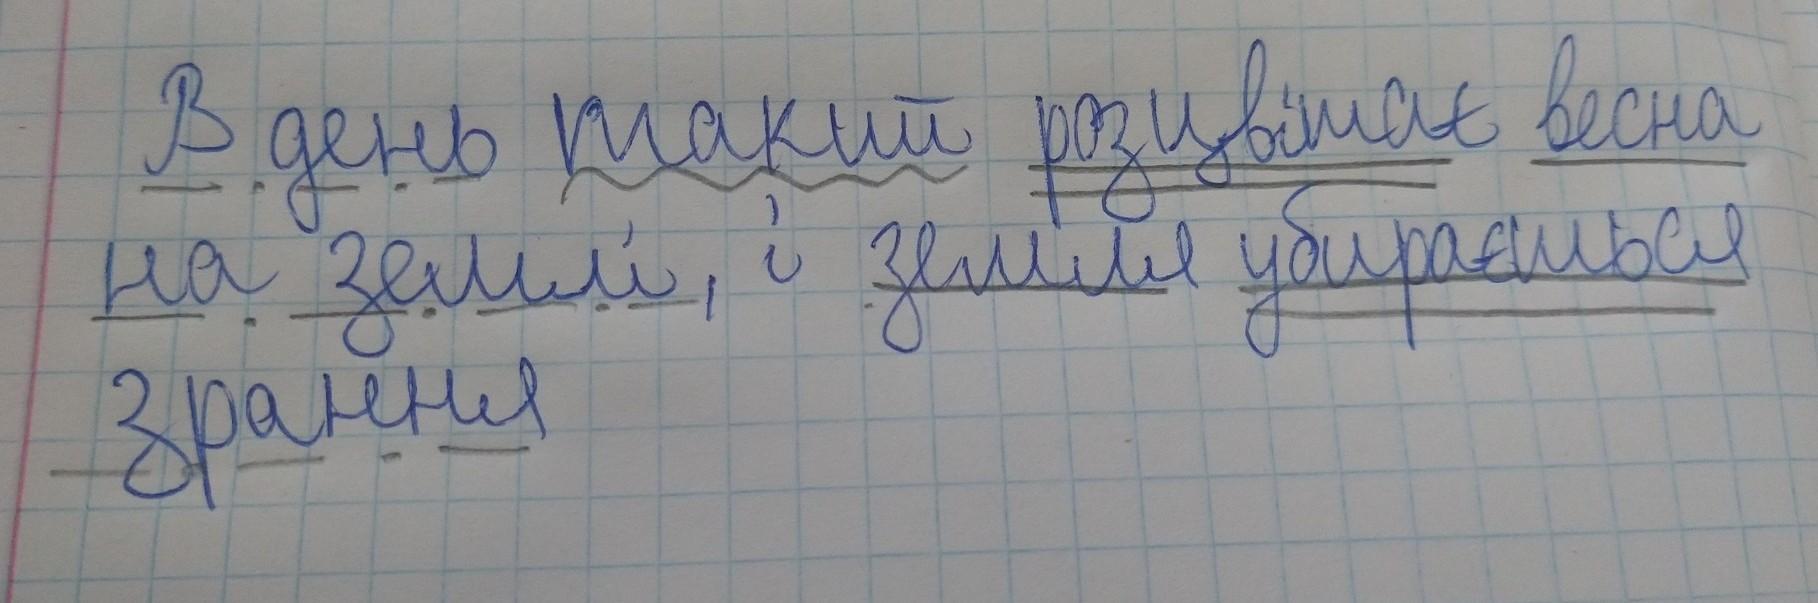 В день такий розцвітає весна
на землі, і земля убирається
зрання